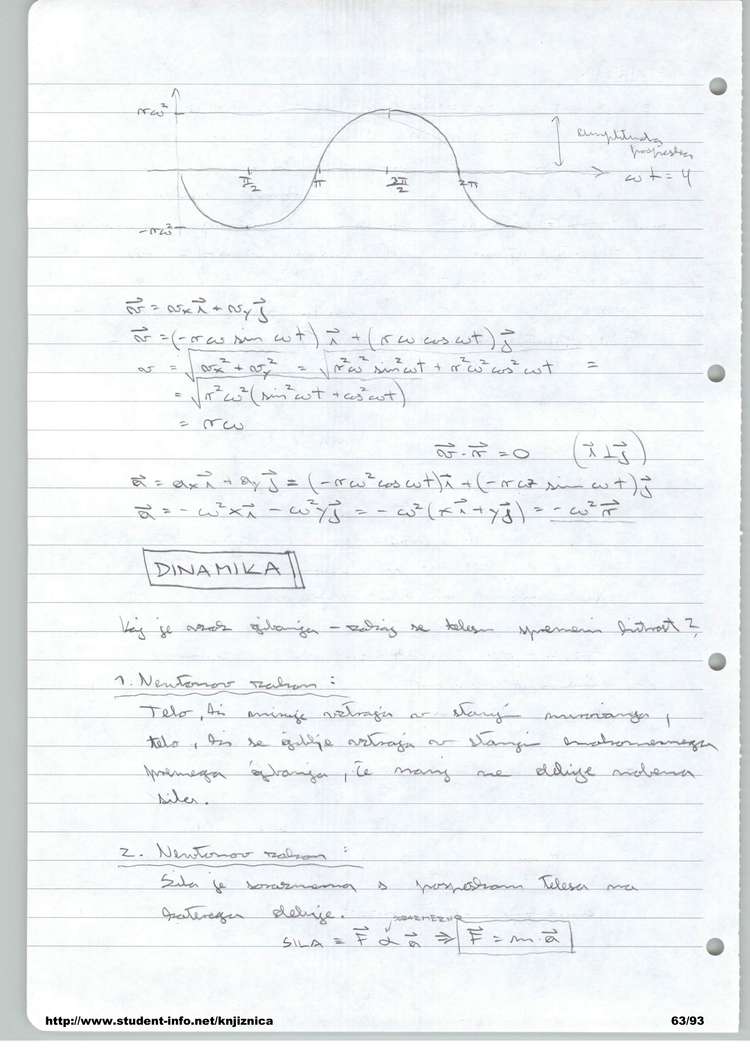 rω²
amplituda
pospeška
π/2 π 3π/2 2π
ωt = φ
-rω²
v⃗ = vₓi⃗ + vᵧj⃗
v⃗ = (-rω sin ωt) i⃗ + (rω cos ωt) j⃗
v = √(vₓ² + vᵧ²) = √(r²ω² sin²ωt + r²ω² cos²ωt) =
= √(r²ω² (sin²ωt + cos²ωt))
= rω
v⃗ · r⃗ = 0 (i⃗ ⊥ j⃗)
a⃗ = aₓi⃗ + aᵧj⃗ = (-rω² cos ωt) i⃗ + (-rω² sin ωt) j⃗
a⃗ = -ω²x i⃗ - ω²y j⃗ = -ω² (x i⃗ + y j⃗) = -ω² r⃗
DINAMIKA
Kaj je vzrok gibanja – zakaj se telesu spremeni hitrost?
1. Newtonov zakon:
Telo, ki miruje vztraja v stanju mirovanja,
telo, ki se giblje vztraja v stanju enakomernega
premega gibanja, če nanj ne deluje nobena
sila.
2. Newtonov zakon:
Sila je sorazmerna s pospeškom telesa na
katerega deluje.
SORAZMERJE
SILA = F⃗ α a⃗ ⇒ F⃗ = m·a⃗
http://www.student-info.net/knjiznica
63/93